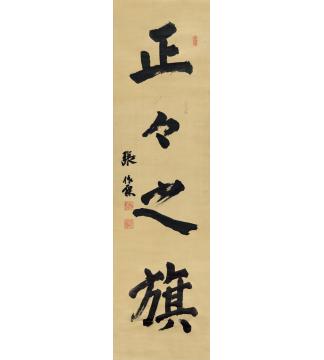 正々之旗
張作霖